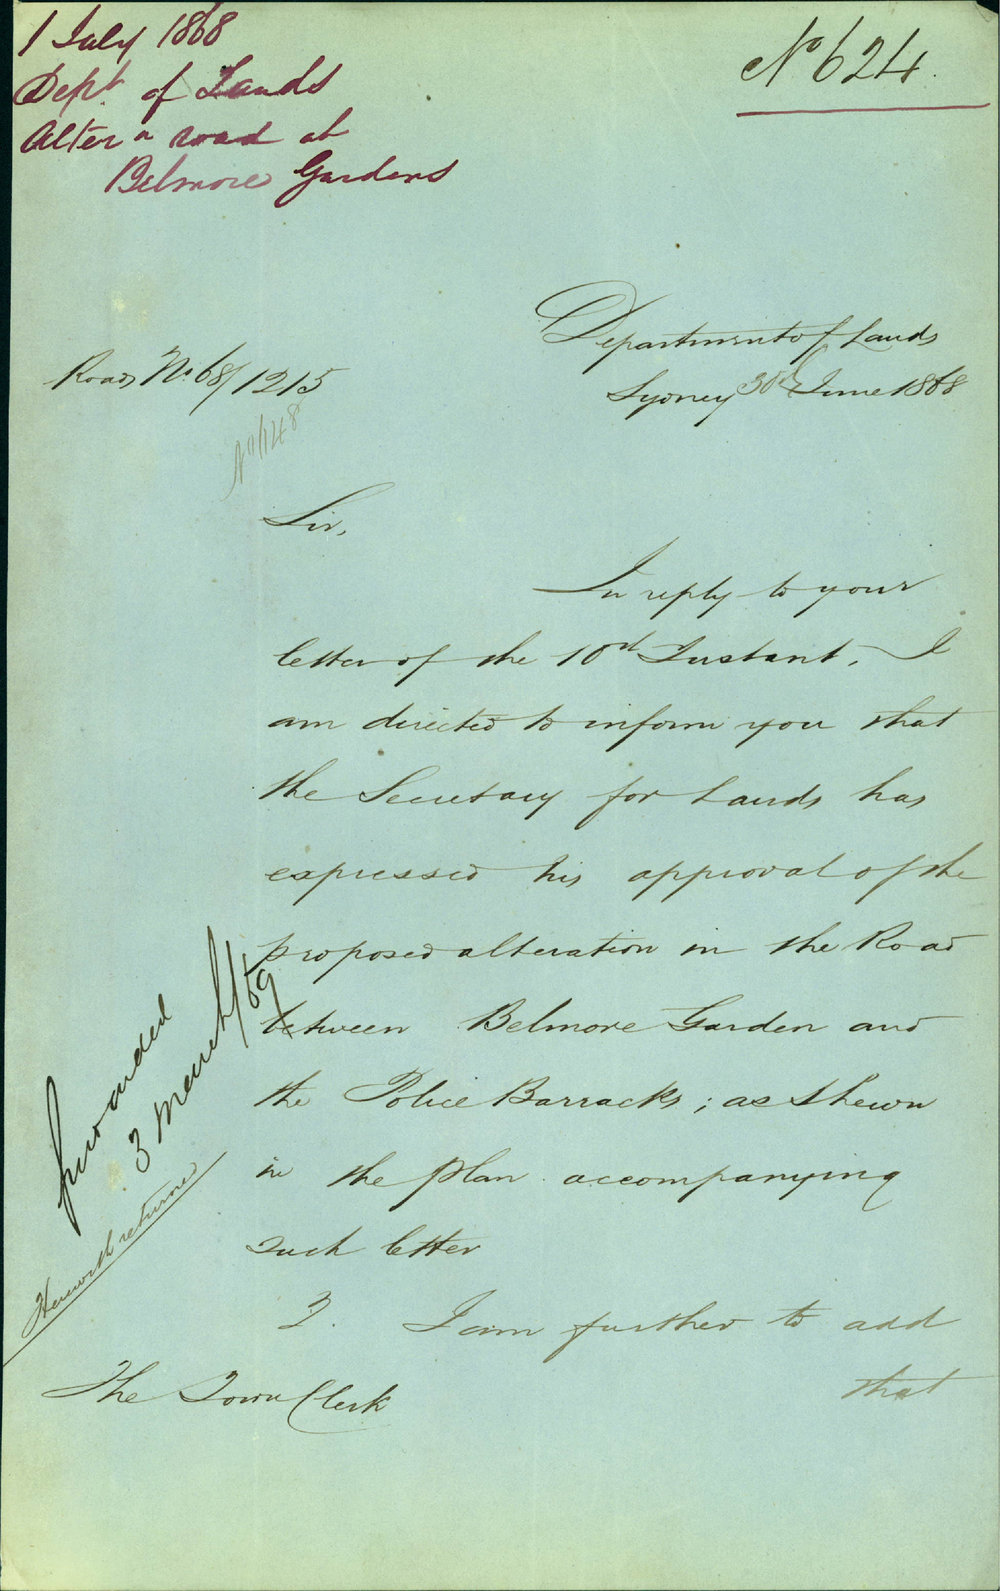 1 July 1868
Dept of Lands
Alter n road at
Belmore Gardens
No 624
Department of Lands
Sydney 30th June 1868
Roads No. 68/1215
No 1148
Sir,
In reply to your
letter of the 10th Instant, I
am directed to inform you that
the Secretary for Lands has
expressed his approval of the
proposed alteration in the Road
between Belmore Garden and
the Police Barracks; as shewn
in the plan accompanying
such letter
2. I am further to add
that
The Town Clerk
forwarded
3 March/69
Herewith returned